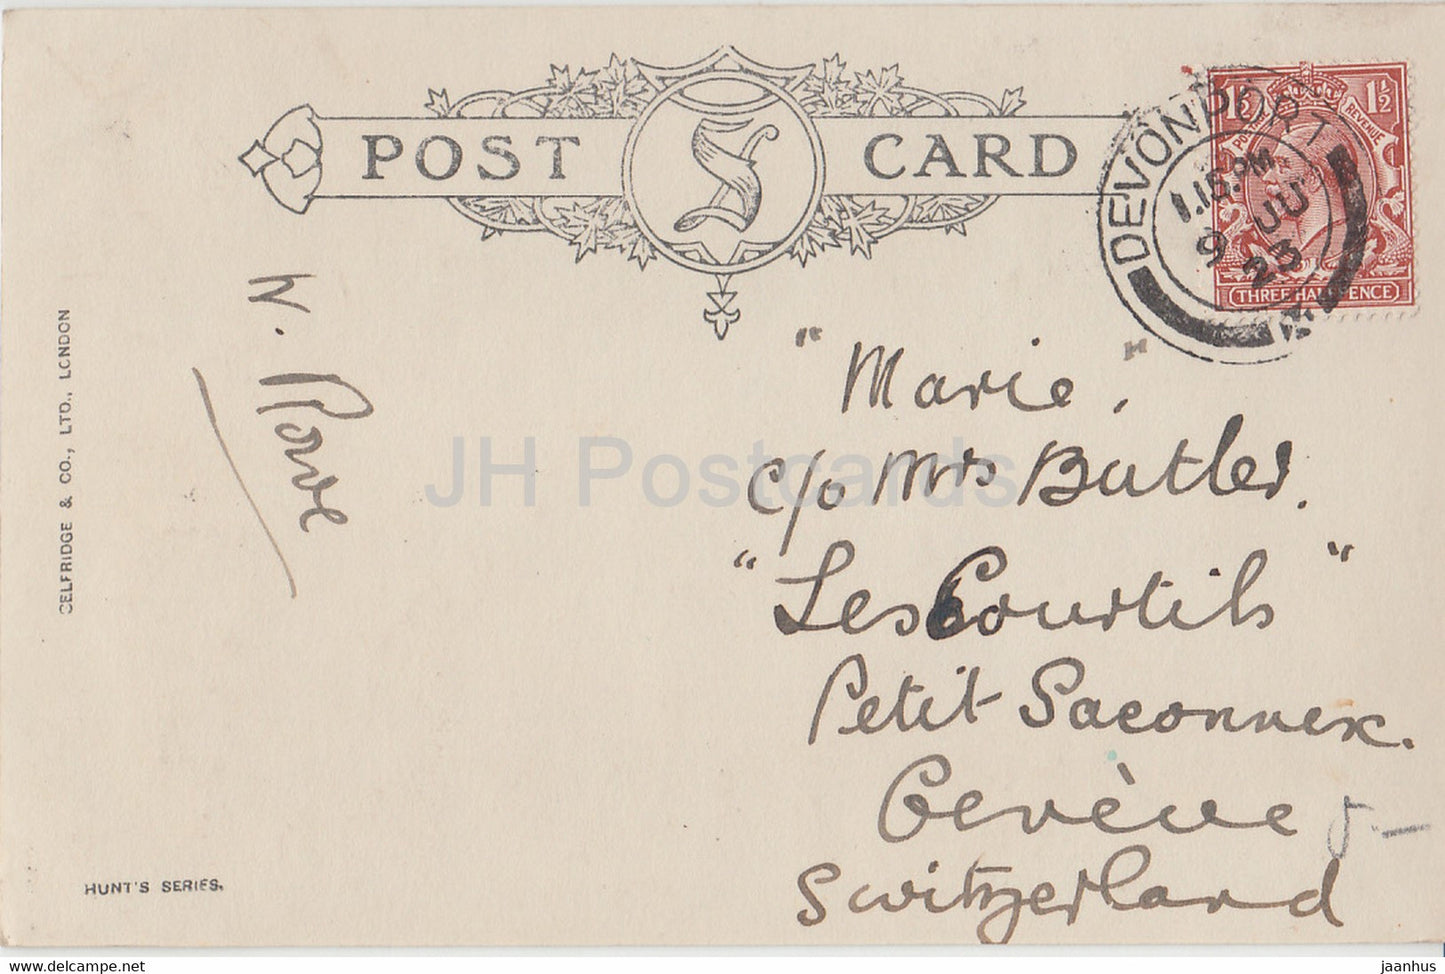 POST CARD
DEVONPORT
1.15 PM
9 JU
23
1½ 1½
POSTAGE REVENUE
THREE HALF PENCE
W. Rowe
"Marie",
c/o Mrs Butler.
"Les Courtils"
Petit Saconnex.
Genève
Switzerland
SELFRIDGE & CO., LTD., LONDON
HUNT'S SERIES.
JH Postcards
www.delcampe.net
jaanhus